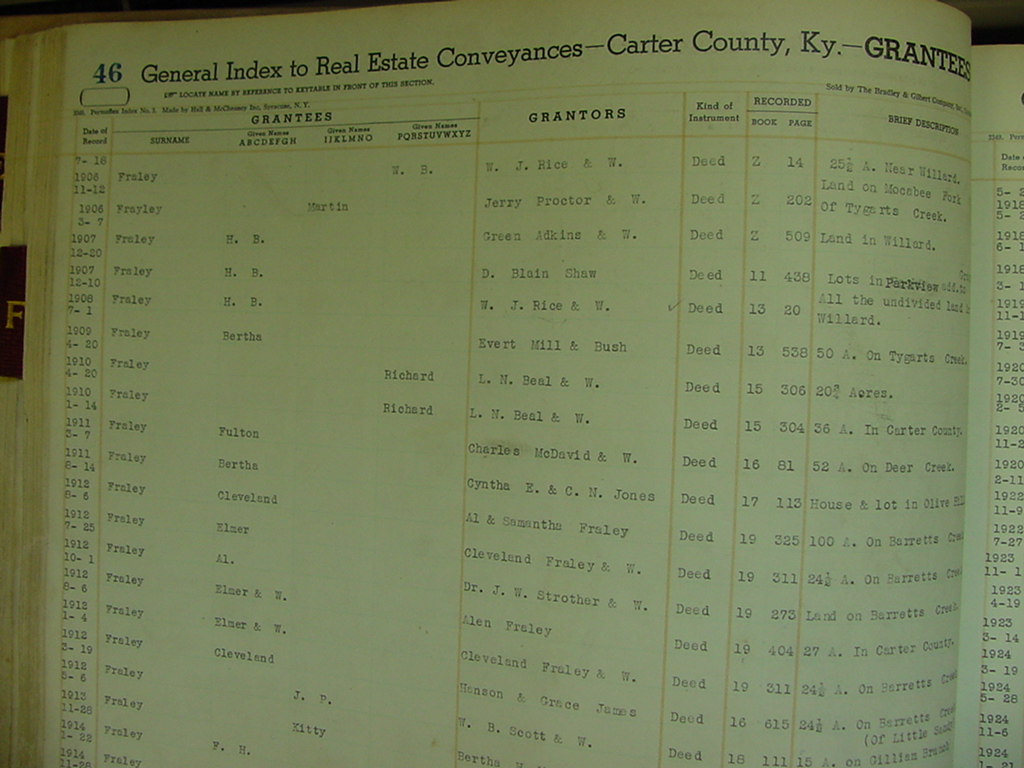 46 General Index to Real Estate Conveyances—Carter County, Ky.—GRANTEES
LOCATE NAME BY REFERENCE TO KEYTABLE IN FRONT OF THIS SECTION.
Made by Hall & McChesney Inc, Syracuse, N. Y.
Sold by The Bradley & Gilbert Company, Inc.
Date of Record
GRANTEES
SURNAME
Given Names ABCDEFGH
Given Names IJKLMNO
Given Names PQRSTUVWXYZ
GRANTORS
Kind of Instrument
RECORDED
BOOK PAGE
BRIEF DESCRIPTION
7- 16
1906 Fraley W. B. W. J. Rice & W. Deed Z 14 25½ A. Near Willard.
11-12
1906 Frayley Martin Jerry Proctor & W. Deed Z 202 Land on Mocabee Fork
Of Tygarts Creek.
3- 7
1907 Fraley H. B. Green Adkins & W. Deed Z 509 Land in Willard.
12-20
1907 Fraley H. B. D. Blain Shaw Deed 11 438 Lots in Parkview add. to
12-10
1908 Fraley H. B. W. J. Rice & W. Deed 13 20 All the undivided land
Willard.
7- 1
1909 Fraley Bertha Evert Mill & Bush Deed 13 538 50 A. On Tygarts Creek.
4- 20
1910 Fraley Richard L. N. Beal & W. Deed 15 306 Acres.
4- 20
1910 Fraley Richard L. N. Beal & W. Deed 15 304 36 A. In Carter County.
1- 14
1911 Fraley Fulton Charles McDavid & W. Deed 16 81 52 A. On Deer Creek.
3- 7
1911 Fraley Bertha Cyntha E. & C. N. Jones Deed 17 113 House & lot in Olive
8- 14
1912 Fraley Cleveland Al & Samantha Fraley Deed 19 325 100 A. On Barretts
8- 6
1912 Fraley Elmer Cleveland Fraley & W. Deed 19 311 24½ A. On Barretts
7- 25
1912 Fraley Al. Dr. J. W. Strother & W. Deed 19 273 Land on Barretts Creek
10- 1
1912 Fraley Elmer & W. Alen Fraley Deed 19 404 27 A. In Carter County.
8- 6
1912 Fraley Elmer & W. Cleveland Fraley & W. Deed 19 311 24½ A. On Barretts
1- 4
1912 Fraley Cleveland Hanson & Grace James Deed 16 615 24½ A. On Barretts
(Of Little
3- 19
1912 Fraley J. P. W. B. Scott & W. Deed 18 111 15 A. on Gilliam Branch
5- 6
1913 Fraley Kitty Bertha
11-28
1914 Fraley F. H.
1- 22
1914 Fraley
11-28
F
Date
Recor
5- 2
1918
5- 2
1918
6- 1
1918
3- 1
1919
11-1
1919
7- 3
1920
7-30
1920
2- 5
1920
11-2
1920
2-11
1922
11-9
1922
7-27
1923
11- 1
1923
4-19
1923
3- 14
1924
3- 19
1924
5- 28
1924
11-6
1924